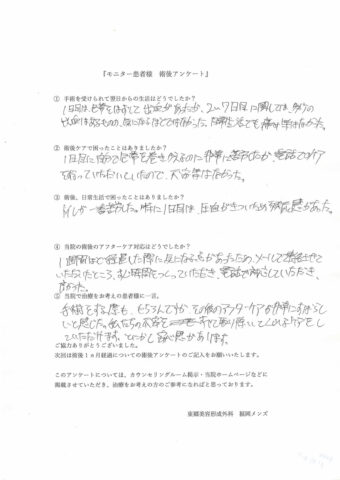 『モニター患者様　術後アンケート』
① 手術を受けられて翌日からの生活はどうでしたか？
1日目は包帯をほどいて出血があったが、2〜7日目に関しては、多少の
出血はあるものの、気になるほどではなかった。日常生活でも痛み等はなかった。
② 術後ケアで困ったことはありましたか？
1日目に自分で包帯を巻きかえるのに非常に苦労したが、電話でケア
を行っていただいたので、大分
③ 術後、日常生活で困ったことはありましたか？
トイレが一番苦労した。特に1日目は、圧迫がきついため
④ 当院の術後のアフターケア対応はどうでしたか？
1週間ほど経過した際に気になる点があったため、メールで連絡させて
いただいたところ、お時間をつくっていただき、電話で対応していただき、
良かった。
⑤ 当院で治療をお考えの患者様に一言。
手術をする際も、もちろんですが、その後のアフターケアが非常にすばらし
いと感じた。私たちの不安を すべて取り除いてくれるケアをし
ていただけます。とにかく安心感があります。
ご協力ありがとうございました。
次回は術後1ヵ月経過についての術後アンケートのご記入をお願いいたします。
このアンケートについては、カウンセリングルーム掲示・当院ホームページなどに
掲載させていただき、治療をお考えの方のご参考になればと思っております。
東郷美容形成外科　福岡メンズ